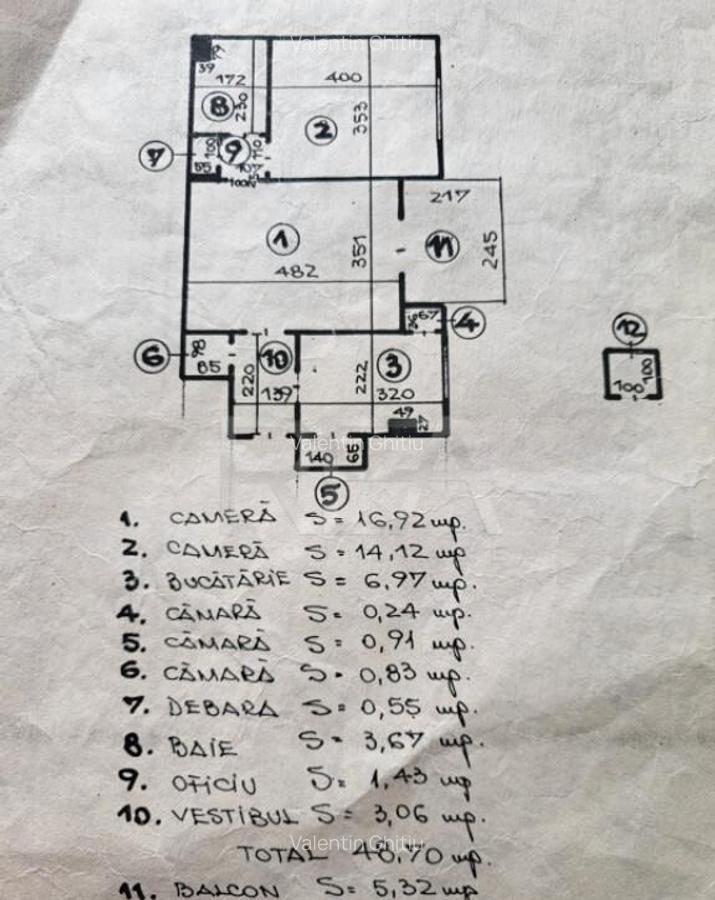 Valentin Ghitiu
39
172
400
8
230
353
2
7
100
9
110
55
217
1
351
11
245
482
36
67
4
12
6
98
85
10
220
139
3
222
320
100
100
49
27
Valentin Ghitiu
140
65
5
1. CAMERĂ S= 16,92 mp.
2. CAMERĂ S= 14,12 mp
3. BUCĂTĂRIE S= 6,97 mp.
4. CĂMARĂ S= 0,24 mp.
5. CĂMARĂ S= 0,91 mp.
6. CĂMARĂ S= 0,83 mp.
7. DEBARA S= 0,55 mp.
8. BAIE S= 3,67 mp.
9. OFICIU S= 1,43 mp
10. VESTIBUL S= 3,06 mp.
Valentin Ghitiu
TOTAL 48,70 mp.
11. BALCON S= 5,32 mp